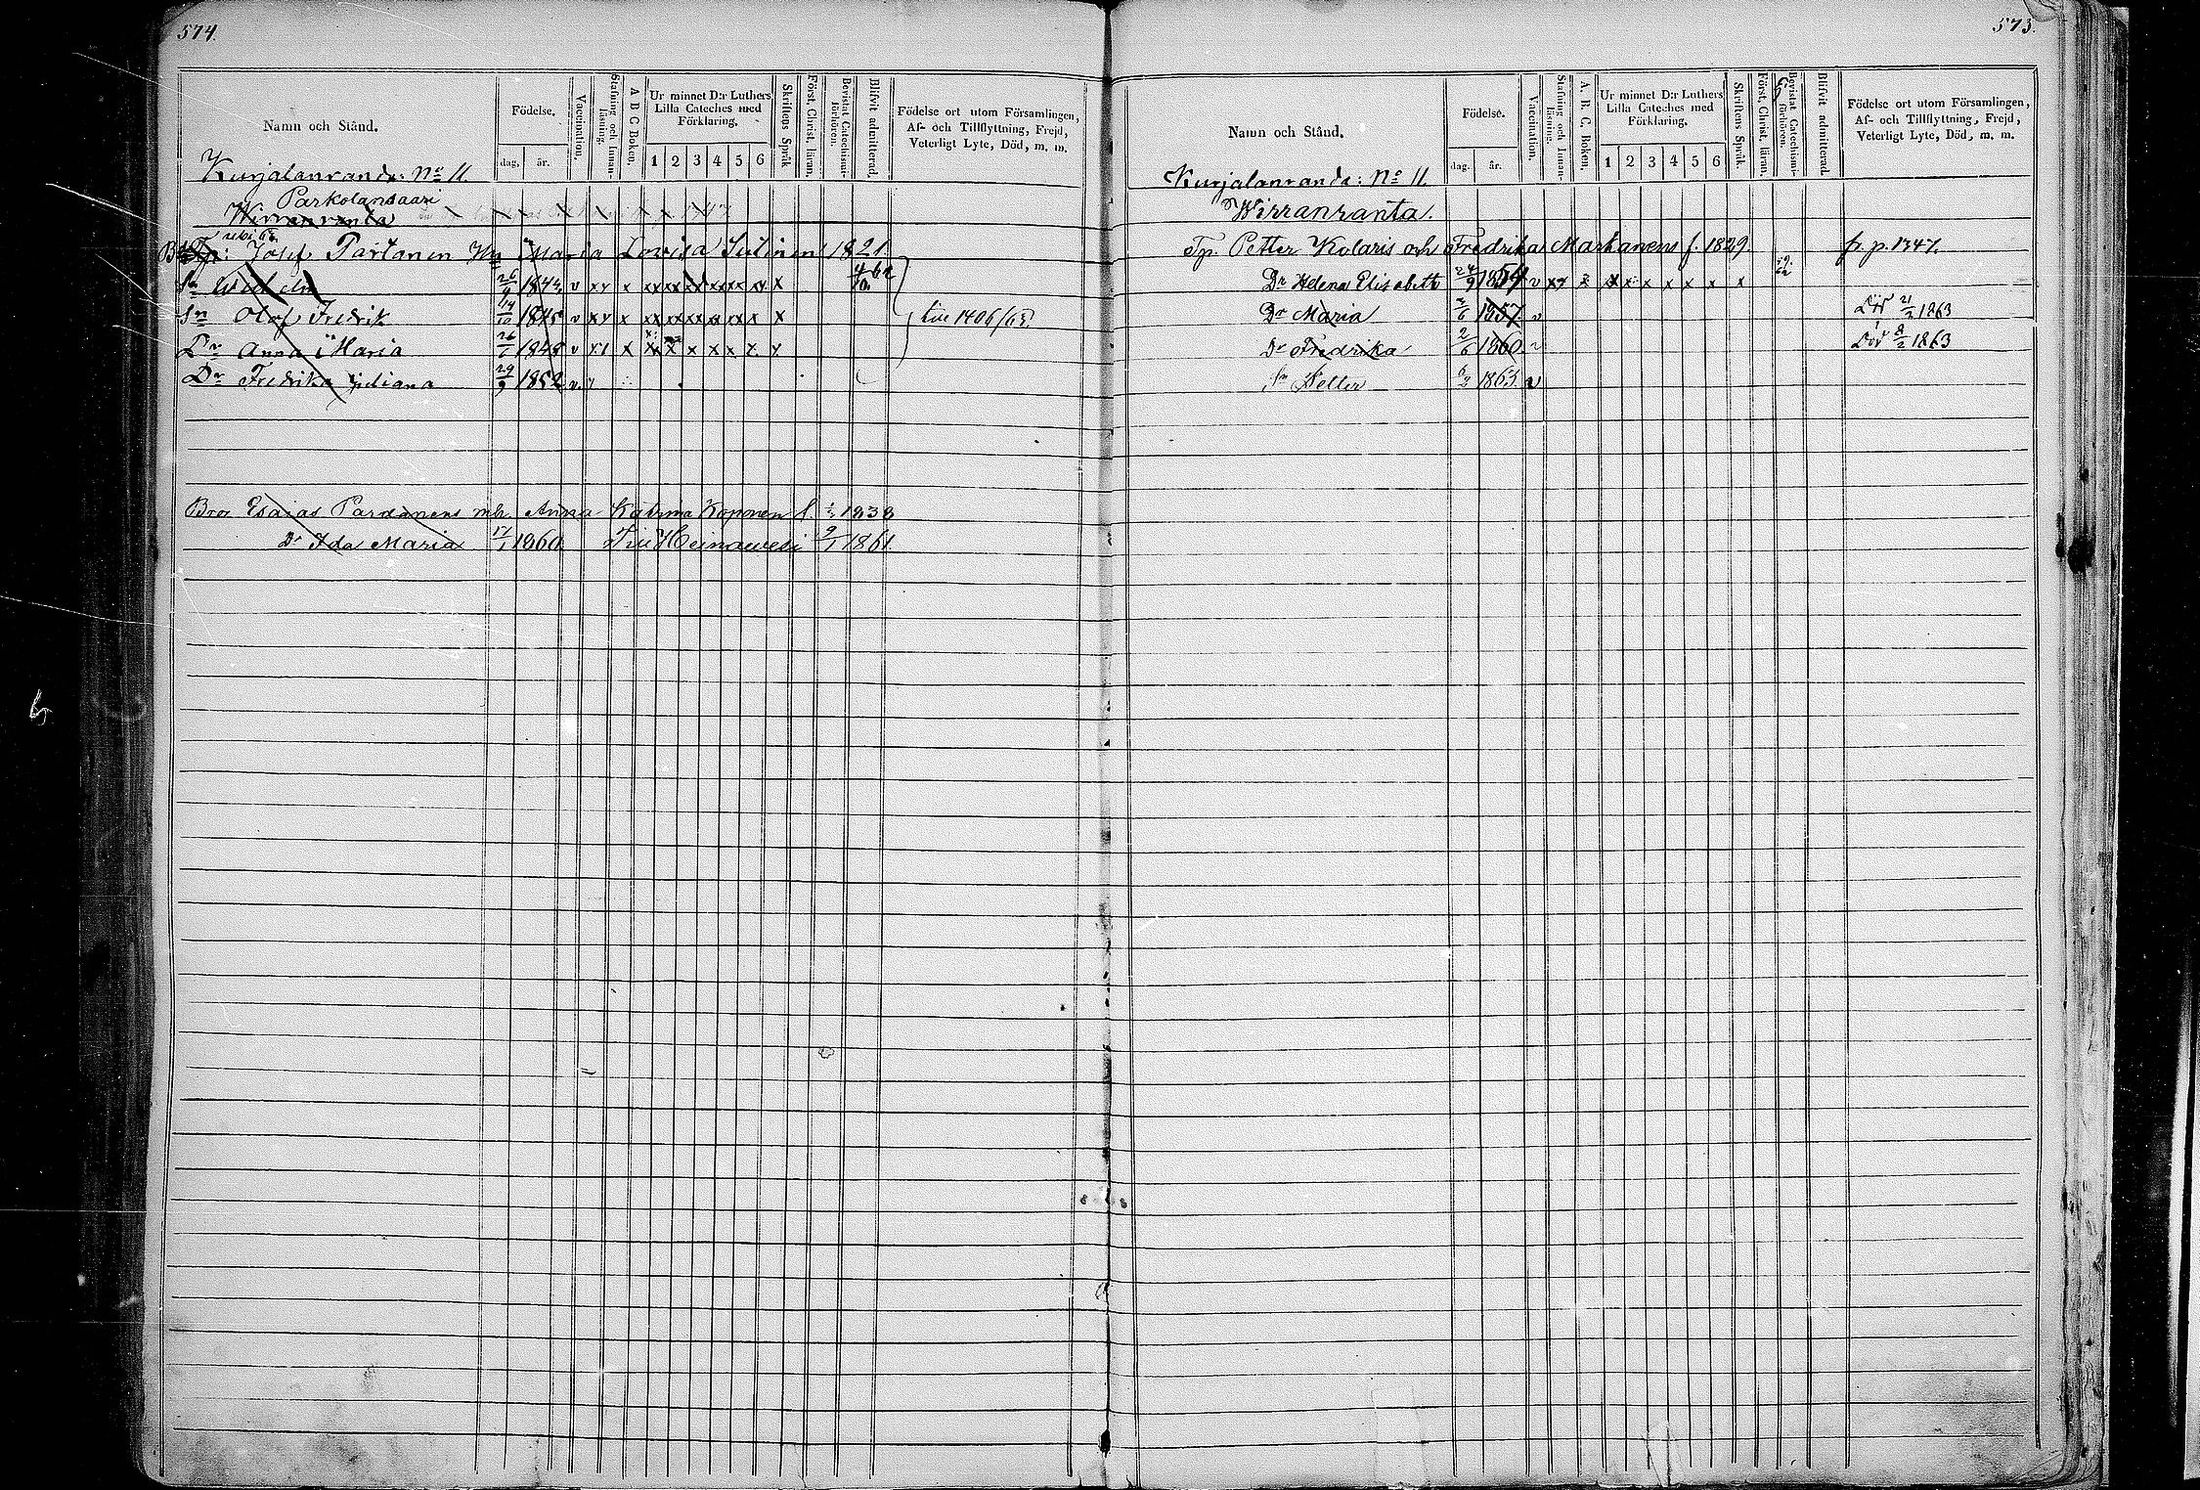 574.
Namn och Stånd.
Födelse.
dag. år.
Vaccination.
Stafning och Innan-läsning.
A B C Boken.
Ur minnet D:r Luthers Lilla Cateches med Förklaring.
1 2 3 4 5 6
Skriftens Språk
Först. Christ. läran.
Bevistat Catechismi-förhören.
Blifvit admitterad.
Födelse ort utom Församlingen,
Af- och Tillflyttning, Frejd,
Veterligt Lyte, Död, m. m.
Kurjalanranda: No 11.
Parkolansaari
Wirranranta
Josef Partanen Hu Maria Lovisa Sutinen 1821.
Sn Wilhelm 26/4 1844 v xy x xx xx xx xx xx xy x 4/10 62
Sn Olof Fredrik 14/10 1845 v xy x xx xx xx xx xx x x till 1406/65.
Dr Anna Maria 26/6 1848 v x x x x x x x x
Dr Fredrika Juliana 29/9 1852 v
Bror Esaias Partanens mh. Anna Katrina Koponen f. 1838
Dr Ida Maria 17/1 1860. Till Heinävesi 9/1 1861.
575.
Namn och Stånd.
Födelse.
dag. år.
Vaccination.
Stafning och Innan-läsning.
A. B. C. Boken.
Ur minnet D:r Luthers Lilla Cateches med Förklaring.
1 2 3 4 5 6
Skriftens Språk.
Först. Christ. läran.
Bevistat Catechismi-förhören.
Blifvit admitterad.
Födelse ort utom Församlingen,
Af- och Tillflyttning, Frejd,
Veterligt Lyte, Död, m. m.
Kurjalanranda: No 11.
Wirranranta.
Tp. Petter Kolaris och Fredrika Markanens f. 1829. fr. p. 1347.
Dr Helena Elisabeth 24/9 1854 v xy x x x x x x x x
Dr Maria 2/6 1857 v Död 21/2 1863
Dr Fredrika 2/6 1860. v Död 8/2 1863
Sn Petter 6/2 1863. v